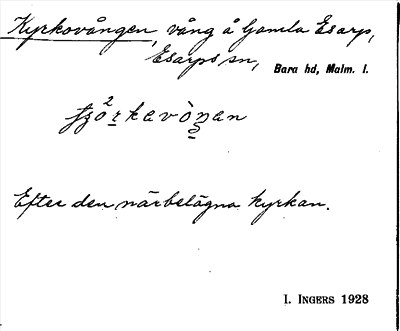 Kyrkovången, vång å Gamla Esarp,
Esarps sn, Bara hd, Malm. l.
Efter den närbelägna kyrkan.
I. INGERS 1928